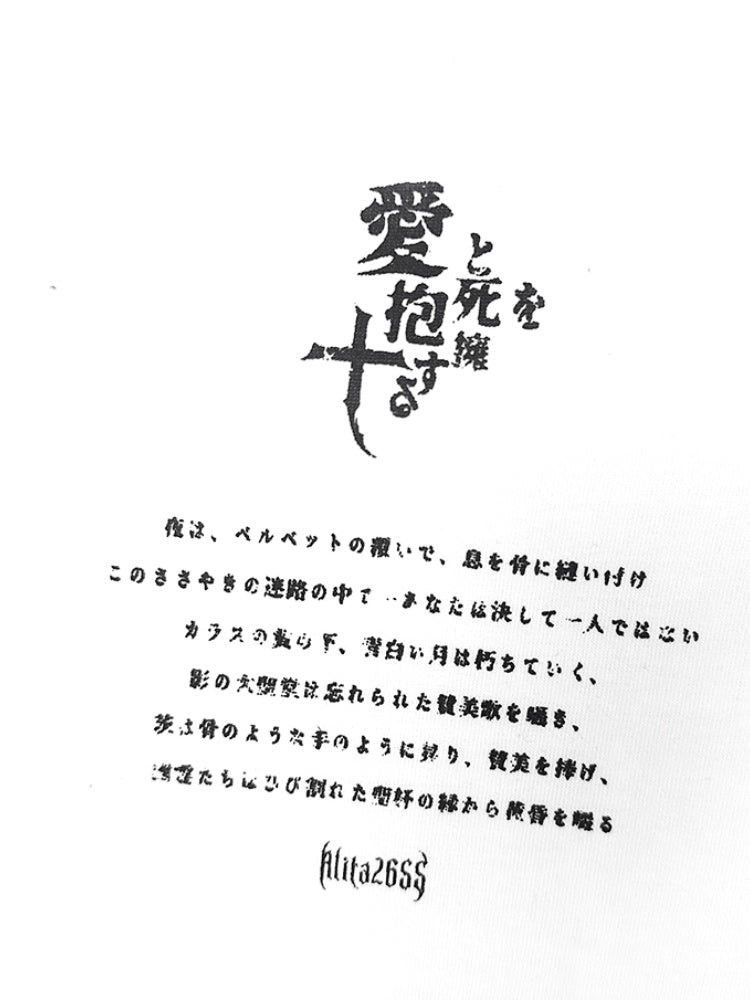 愛と死を擁抱する
夜は、ベルベットの覆いで、息を骨に縫い付け
このささやきの迷路の中で あなたは決して一人ではない
カラスの散ら下、青白い月は朽ちていく、
影の大聖堂は忘れられた賛美歌を囁き、
茨は骨のような手のように昇り、賛美を捧げ、
たちはひび割れた聖杯の縁から黄昏を啜る
Alita26SS